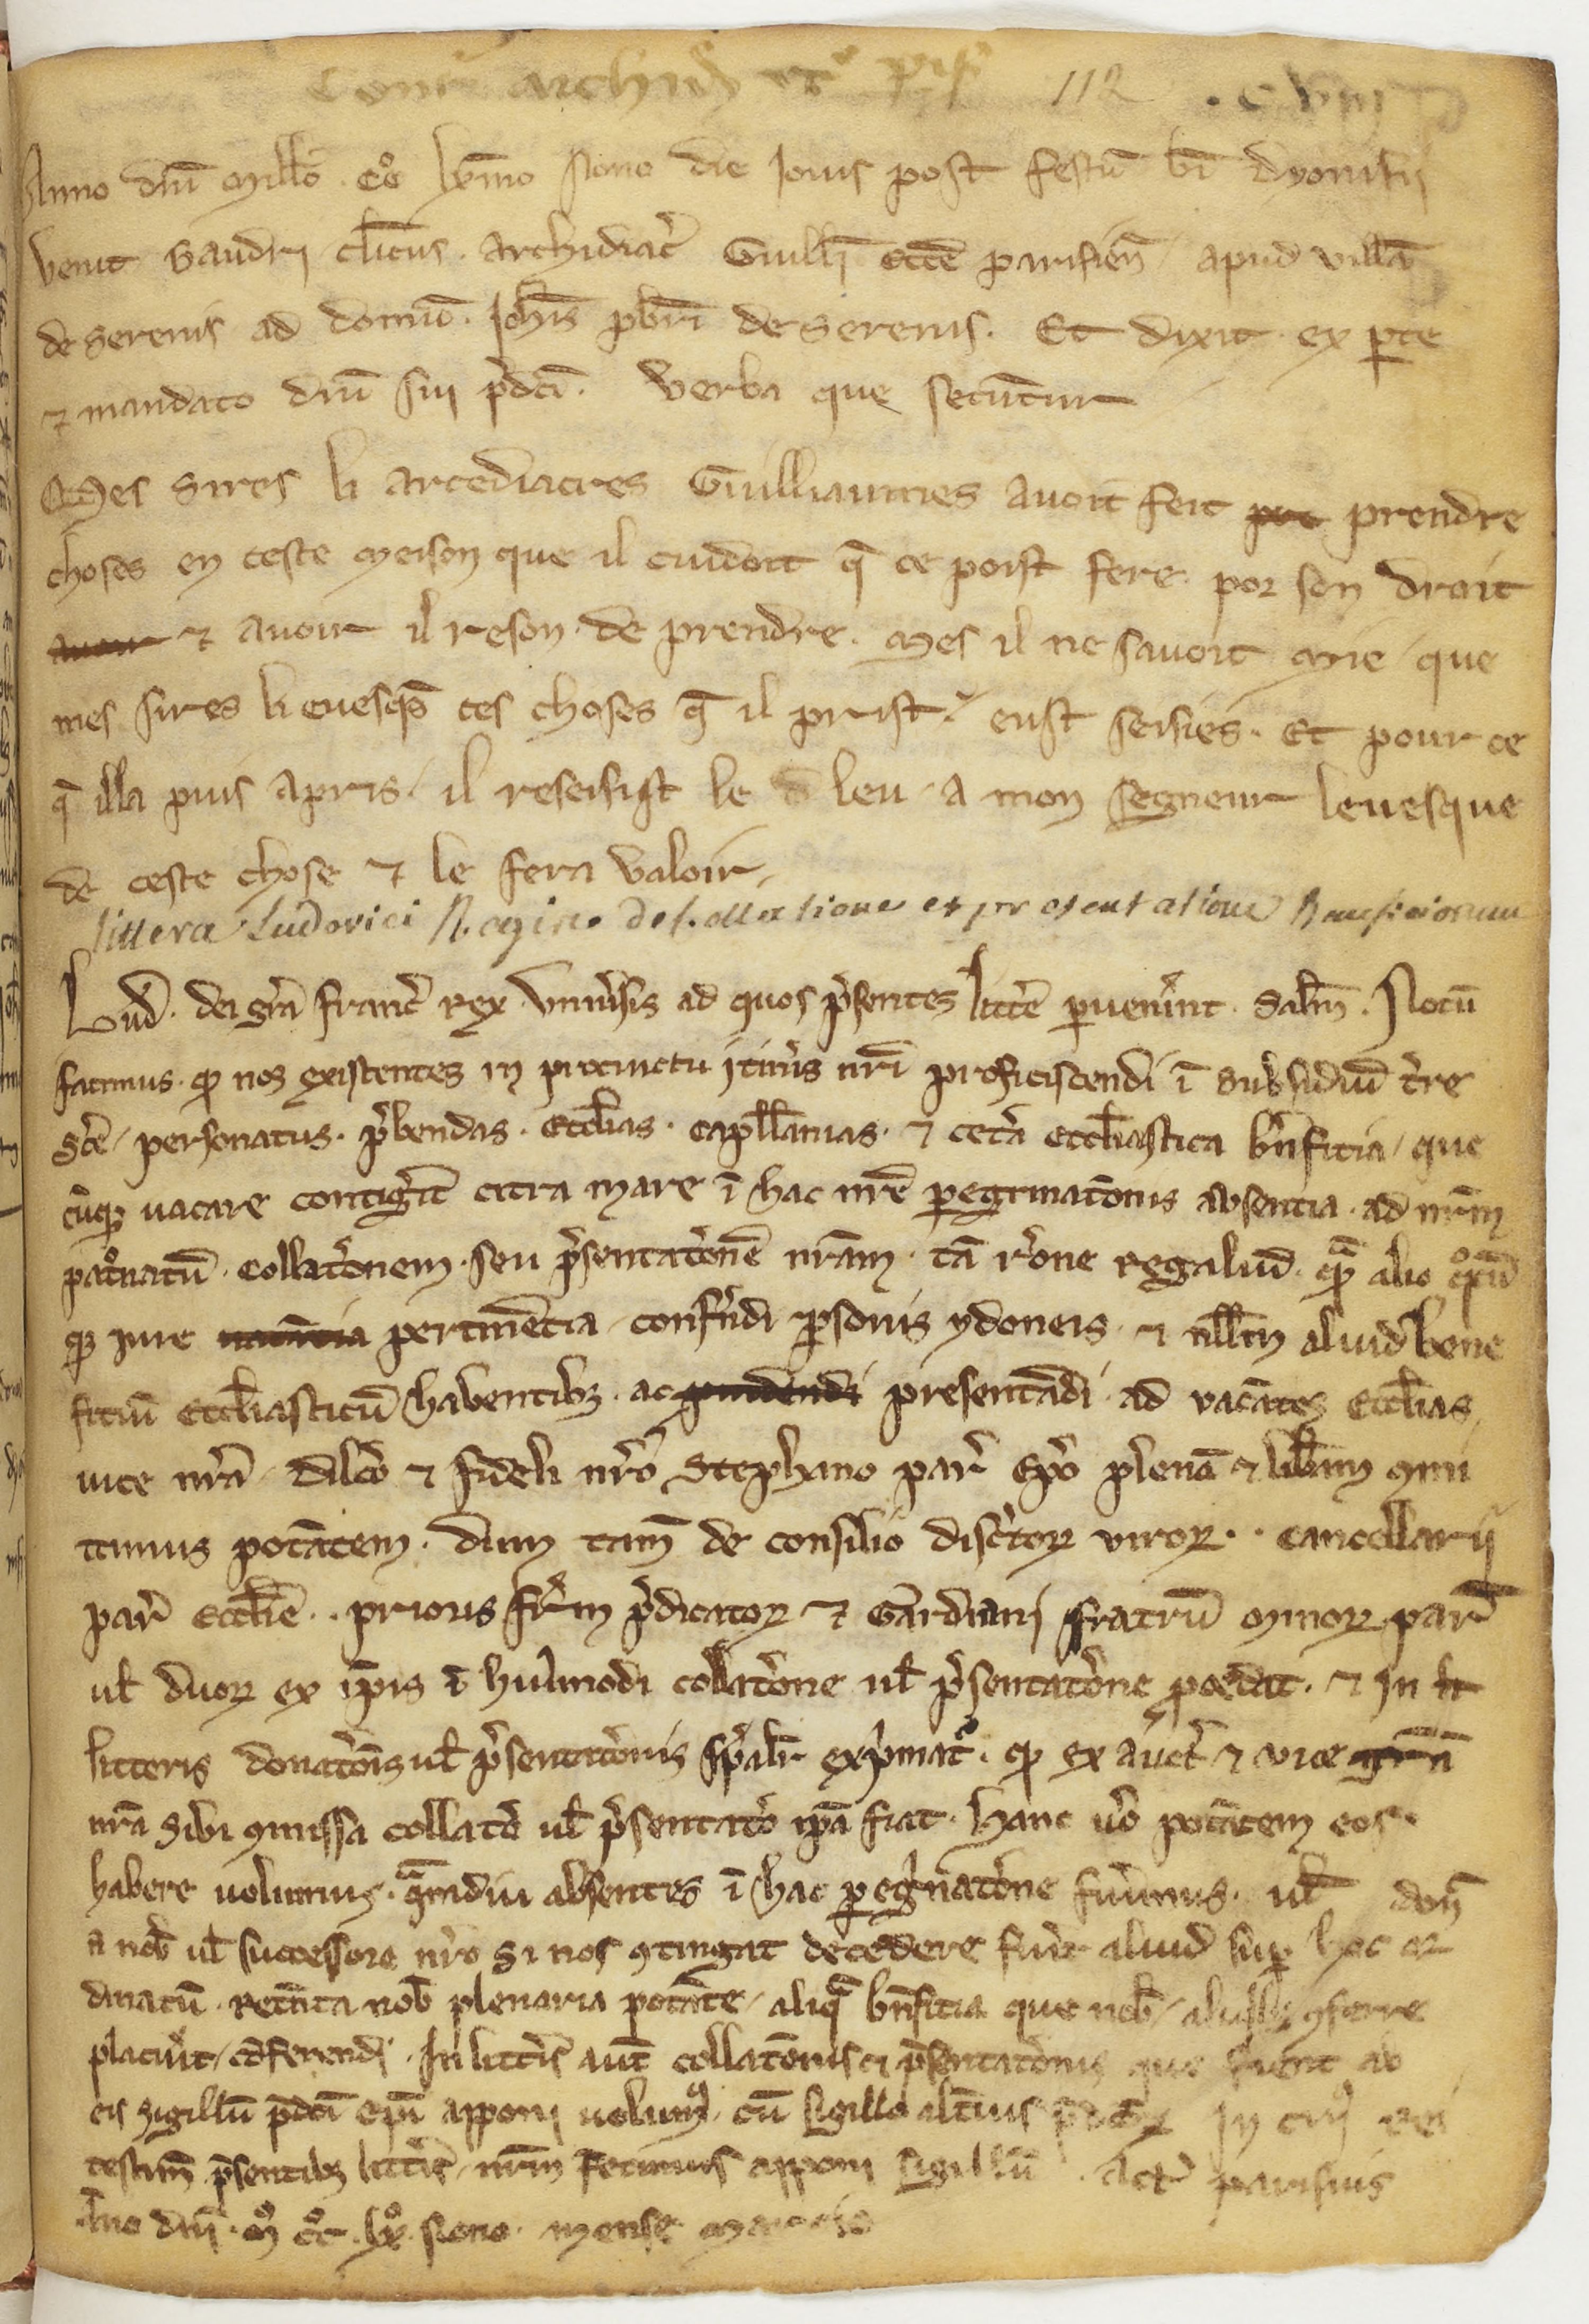 112 . C VIII
Anno dnī Millō . CCº lxͫo Nono die Iovis post festū bī Dyonisii
venit Vaudri cl̄icus . archidiac̄ Guill̄i eccē parisien̄ / apud villā
de Serenis ad domū . Joh̄is p̄br̄i de Serenis . Et dixit . ex ꝑte
⁊ mandato dnī sui p̄dc̄i . verba que secūtur
Mes Sires li arcediacres Guilliaumes avoit feit pre prendre
choses en ceste meison que il cuidoit q̄ ce poist fere por son droit
avour ⁊ avoir il reson . de prendre . Mes il ne savoit mie / que
mes sires li evesqs̄ ces choses q̄ il prist . eust seisies . Et pour ce
q̄ illa puis apris / il reseisist le d leu / a mon segneur levesque
de ceste chose ⁊ le fera valoir /
littera Ludovici Regis de Collatione et presentatione Beneficiorum
Lud̄ . dei gr̄a franc̄ Rex . Univ̄sis ad quos p̄sentes litt̄e ꝑven̄int . Sal̄m . Notū
facimus . ꝙ nos existentes in procinctu itin̄is nr̄i proficiscendi ī subsidiū t̄re
Sc̄e / personatus . p̄bendas . Eccl̄ias . capell̄anias . ⁊ cet̄a eccl̄iastica bn̄ficia / que
cūqꝫ vacare contiḡit citra mare ī hac nr̄e ꝑegrinatōnis absentia . ad nr̄am
pat̄natū . collatōnem . seu p̄sentatōnē nr̄am . tā rōne regaliū . qꝫ̄ alio q̊cū
qꝫ iure pertinētia / conf̄endi ꝑsonis ydoneis . ⁊ null̄m aliud bene
ficiū eccl̄iasticū habentibꝫ . ac p̄sentādi . ad vacātes Eccl̄ias
vice nr̄a / dil̄co ⁊ fideli nr̄o Stephano par̄ ep̄o plenā ⁊ lib̄am ꝯmi
ttimus potātem . dum tam̄ de consilio discr̄torꝝ virorꝝ . . Cancellarij
par̄ Eccl̄ie . . prioris fr̄m p̄dicatorꝝ ⁊ Gardiani fratrū minorꝝ par̄
ul̄ duorꝝ ex ip̄is ī hui̇modi collatōne ul̄ p̄sentatōne ꝓcedat . ⁊ in li
litteris donatōis ul̄ p̄sentatōnis sp̄alit̄ exp̄mat̄ . ꝙ ex auct̄ ⁊ vice
nr̄a sibi ꝯmissa collatō ul̄ p̄sentatō ip̄a fiat . hanc v̄o potātem eos .
habere volumus . q̄mdiu absentes ī hac ꝑeg̓natōne fu̓imus . ul̄ don̄
a nob̄ ul̄ successore nr̄o si nos ꝯtingat decedere fu̓it aliud sup̄ hoc or
dinatū . Retēta nob̄ plenaria potāte / aliq̄ bn̄ficia que nob̄ / ꝯferre
placu̓it / cōferendi . In litt̄is aut̄ collatōnis ⁊ p̄sentatōnis que fient ab
eis sigillū p̄dc̄i ep̄i apponi volumꝰ . cū sigillo alt̄ius p̄dc̄orꝝ In cuiꝰ rei
testim̄ p̄sentibꝫ litt̄is / nr̄m fecimus apponi sigillū . Act̄ parisius
Ano dnī . Mº CCº . lxº . Nono . mense Marcio